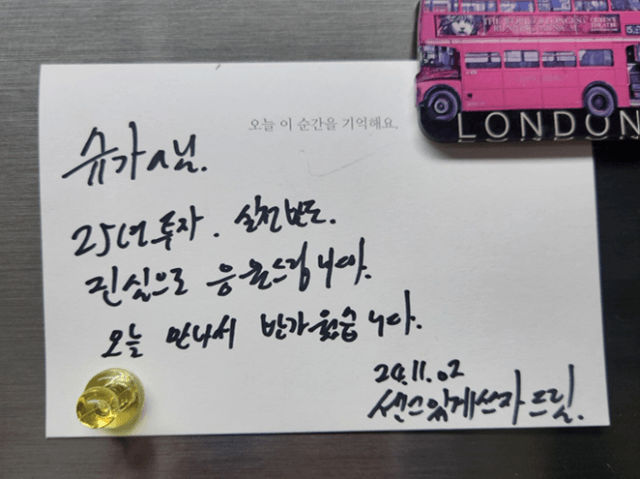 LONDON
오늘 이 순간을 기억해요.
슈가a님.
25년 투자. 실천만도.
진심으로 응원드립니다.
오늘 만나서 반가웠습니다.
24.11.02
센스있게쓰자 드림.